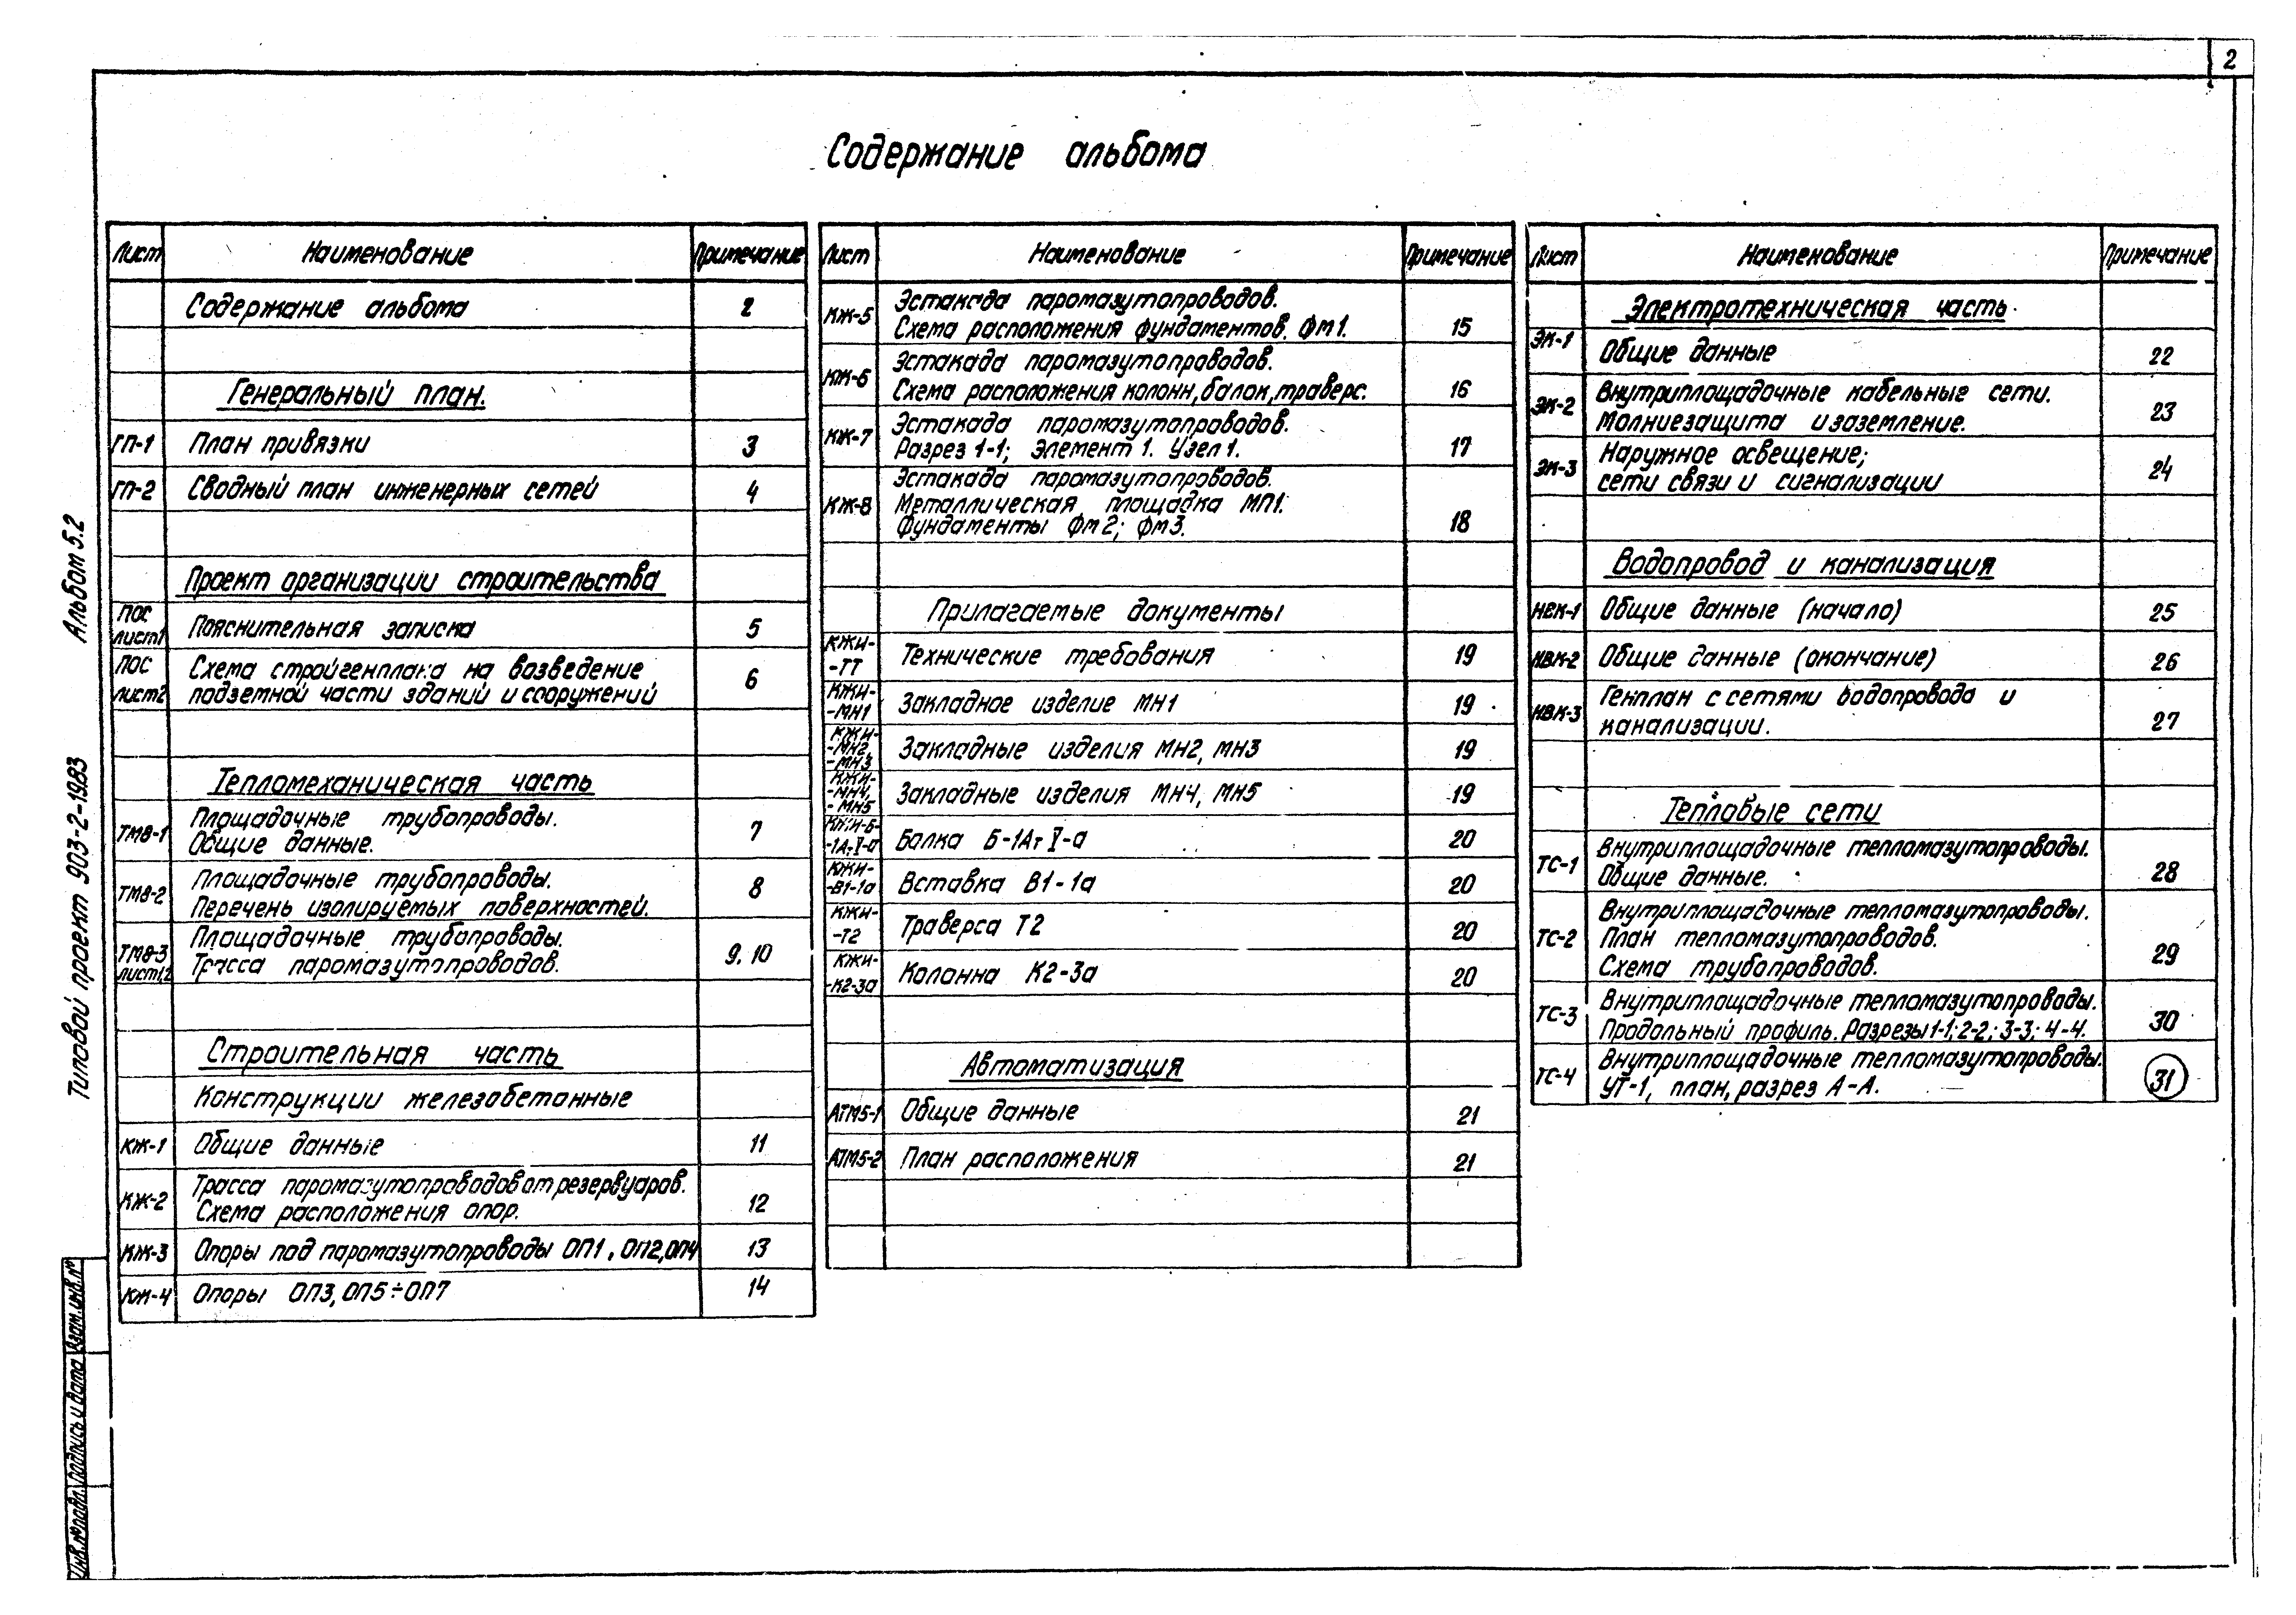 2
Содержание альбома
Лист Наименование Примечание
Содержание альбома 2
Генеральный план.
ГП-1 План привязки 3
ГП-2 Сводный план инженерных сетей 4
Проект организации строительства
ПОС
лист1 Пояснительная записка 5
ПОС Схема стройгенплана на возведение
лист2 подземной части зданий и сооружений 6
Тепломеханическая часть
ТМ8-1 Площадочные трубопроводы.
Общие данные. 7
ТМ8-2 Площадочные трубопроводы.
Перечень изолируемых поверхностей. 8
ТМ8-3 Площадочные трубопроводы.
лист1,2 Трасса паромазутопроводов. 9, 10
Строительная часть
Конструкции железобетонные
КЖ-1 Общие данные 11
КЖ-2 Трасса паромазутопроводов от резервуаров.
Схема расположения опор. 12
КЖ-3 Опоры под паромазутопроводы ОП1, ОП2, ОП4 13
КЖ-4 Опоры ОП3, ОП5÷ОП7 14
Лист Наименование Примечание
КЖ-5 Эстакада паромазутопроводов.
Схема расположения фундаментов. Фм1. 15
КЖ-6 Эстакада паромазутопроводов.
Схема расположения колонн, балок, траверс. 16
КЖ-7 Эстакада паромазутопроводов.
Разрез 1-1; Элемент 1. Узел 1. 17
КЖ-8 Эстакада паромазутопроводов.
Металлическая площадка МП1.
Фундаменты Фм2; Фм3. 18
Прилагаемые документы
КЖИ-
-ТТ Технические требования 19
КЖИ-
-МН1 Закладное изделие МН1 19
КЖИ-
-МН2,
-МН3 Закладные изделия МН2, МН3 19
КЖИ-
-МН4,
-МН5 Закладные изделия МН4, МН5 19
КЖИ-Б-
-1АтV-а Балка Б-1АтV-а 20
КЖИ-
-В1-1а Вставка В1-1а 20
КЖИ-
-Т2 Траверса Т2 20
КЖИ-
-К2-3а Колонна К2-3а 20
Автоматизация
АТМ5-1 Общие данные 21
АТМ5-2 План расположения 21
Лист Наименование Примечание
Электротехническая часть
ЭК-1 Общие данные 22
ЭК-2 Внутриплощадочные кабельные сети.
Молниезащита и заземление. 23
ЭК-3 Наружное освещение;
сети связи и сигнализации 24
Водопровод и канализация
НВК-1 Общие данные (начало) 25
НВК-2 Общие данные (окончание) 26
НВК-3 Генплан с сетями водопровода и
канализации. 27
Тепловые сети
ТС-1 Внутриплощадочные тепломазутопроводы.
Общие данные. 28
ТС-2 Внутриплощадочные тепломазутопроводы.
План тепломазутопроводов.
Схема трубопроводов. 29
ТС-3 Внутриплощадочные тепломазутопроводы.
Продольный профиль. Разрезы 1-1; 2-2; 3-3; 4-4. 30
ТС-4 Внутриплощадочные тепломазутопроводы.
УТ-1, план, разрез А-А. 31
Типовой проект 903-2-19.83 Альбом 5.2
Инв.№подл. Подпись и дата Взам.инв.№